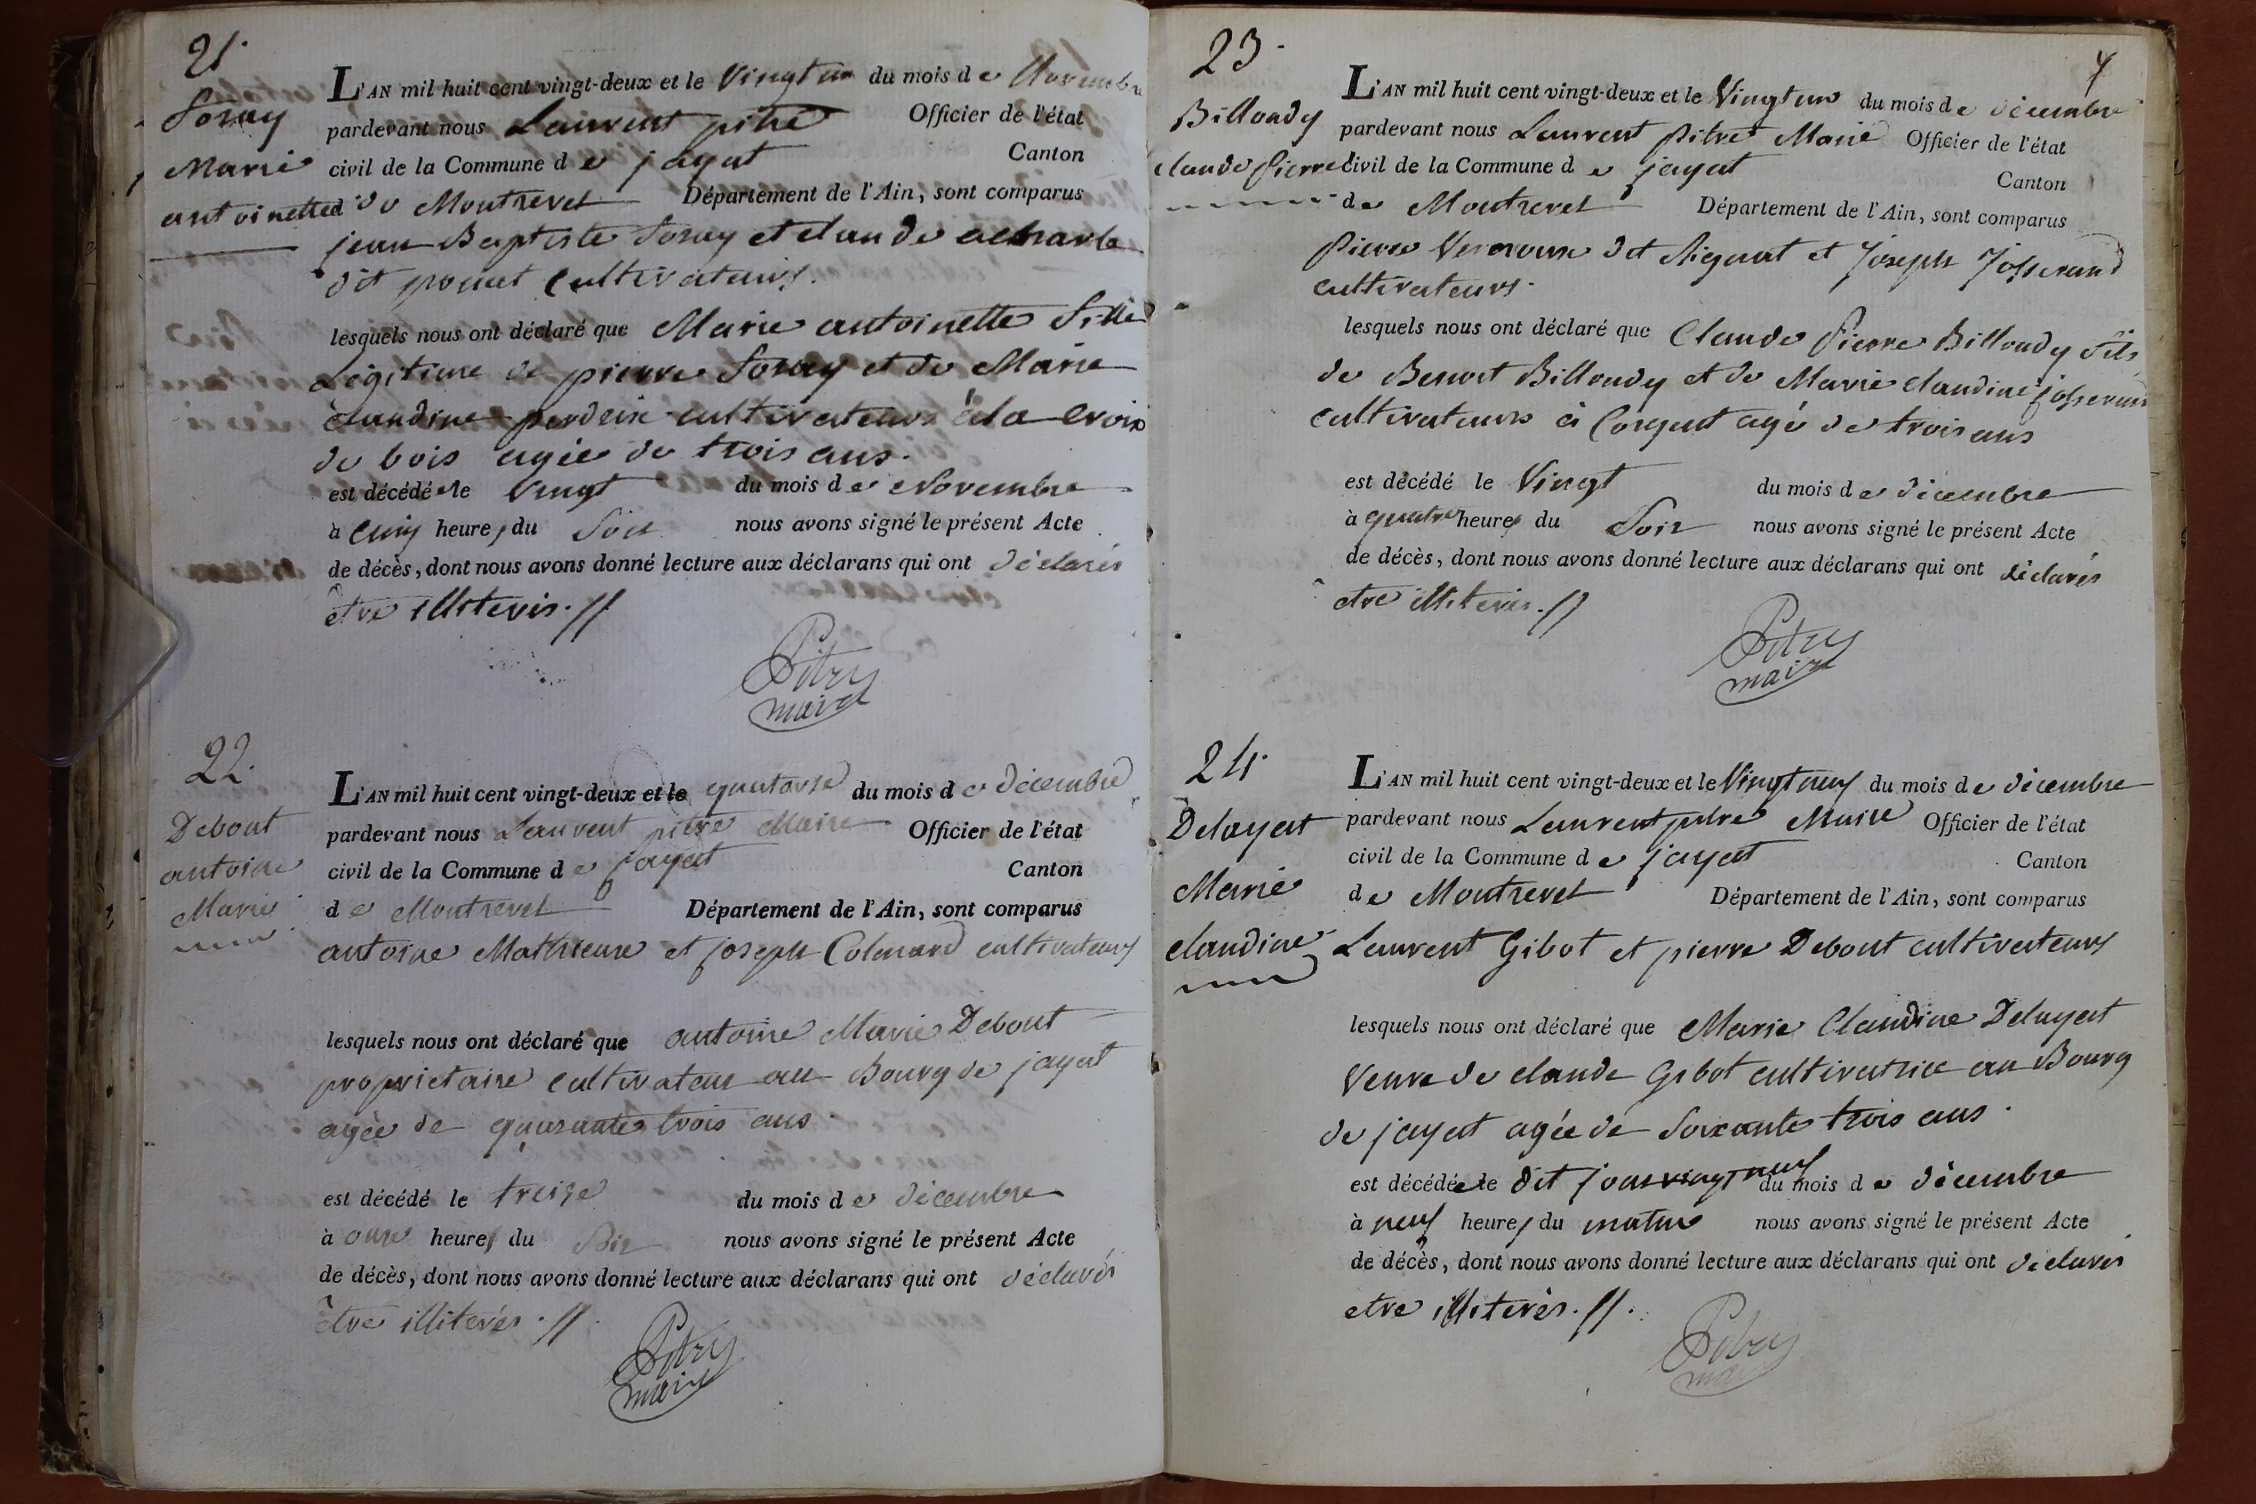 21.
Foray
Marie
antoinette
L'AN mil huit cent vingt-deux et le Vingt un du mois de Novembre
pardevant nous Laurent pitre Officier de l'état
civil de la Commune de jayat Canton
de Montrevel Département de l'Ain, sont comparus
jean Baptiste Foray et claude
dit cultivateurs.
lesquels nous ont déclaré que Marie antoinette fille
Légitime de pierre Foray et de Marie
claudine perdrix cultivateurs à la Croix
de bois agée de trois ans.
est décédé e le Vingt du mois de Novembre
à Cinq heures du Soir nous avons signé le présent Acte
de décès, dont nous avons donné lecture aux déclarans qui ont déclarés
être illiterés. //
Pitre
maire
22.
Debout
antoine
Marie
L'AN mil huit cent vingt-deux et le quatorse du mois de décembre
pardevant nous Laurent pitre Maire Officier de l'état
civil de la Commune de jayat Canton
de Montrevel Département de l'Ain, sont comparus
antoine Mathieux et joseph Colmard cultivateurs
lesquels nous ont déclaré que antoine Marie Debout
proprietaire cultivateur au Bourg de jayat
agée de quarante trois ans
est décédé le treize du mois de décembre
à onze heures du Soir nous avons signé le présent Acte
de décès, dont nous avons donné lecture aux déclarans qui ont déclarés
être illiterés. //
Pitre
maire
7
23.
Billoudy
claude Pierre
L'AN mil huit cent vingt-deux et le Vingt un du mois de décembre
pardevant nous Laurent Pitre Maire Officier de l'état
civil de la Commune de jayat Canton
de Montrevel Département de l'Ain, sont comparus
Pierre dit et Joseph Josserand
cultivateurs.
lesquels nous ont déclaré que Claude Pierre Billoudy fils
de Benoit Billoudy et de Marie claudine josserand
cultivateurs à agé de trois ans
est décédé le Vingt du mois de décembre
à quatre heures du Soir nous avons signé le présent Acte
de décès, dont nous avons donné lecture aux déclarans qui ont déclarés
etre illiterés. //
Pitre
maire
24.
Delayat
Marie
claudine
L'AN mil huit cent vingt-deux et le Vingt neuf du mois de décembre
pardevant nous Laurent pitre Maire Officier de l'état
civil de la Commune de jayat Canton
de Montrevel Département de l'Ain, sont comparus
Laurent Gibot et pierre Debout cultivateurs
lesquels nous ont déclaré que Marie Claudine Delayat
Veuve de claude Gibot cultivatrice au Bourg
de jayat agée de Soixante trois ans.
est décédée le dit jour vingt neuf du mois de décembre
à neuf heures du matin nous avons signé le présent Acte
de décès, dont nous avons donné lecture aux déclarans qui ont déclarés
etre illiterés. //.
Pitre
maire